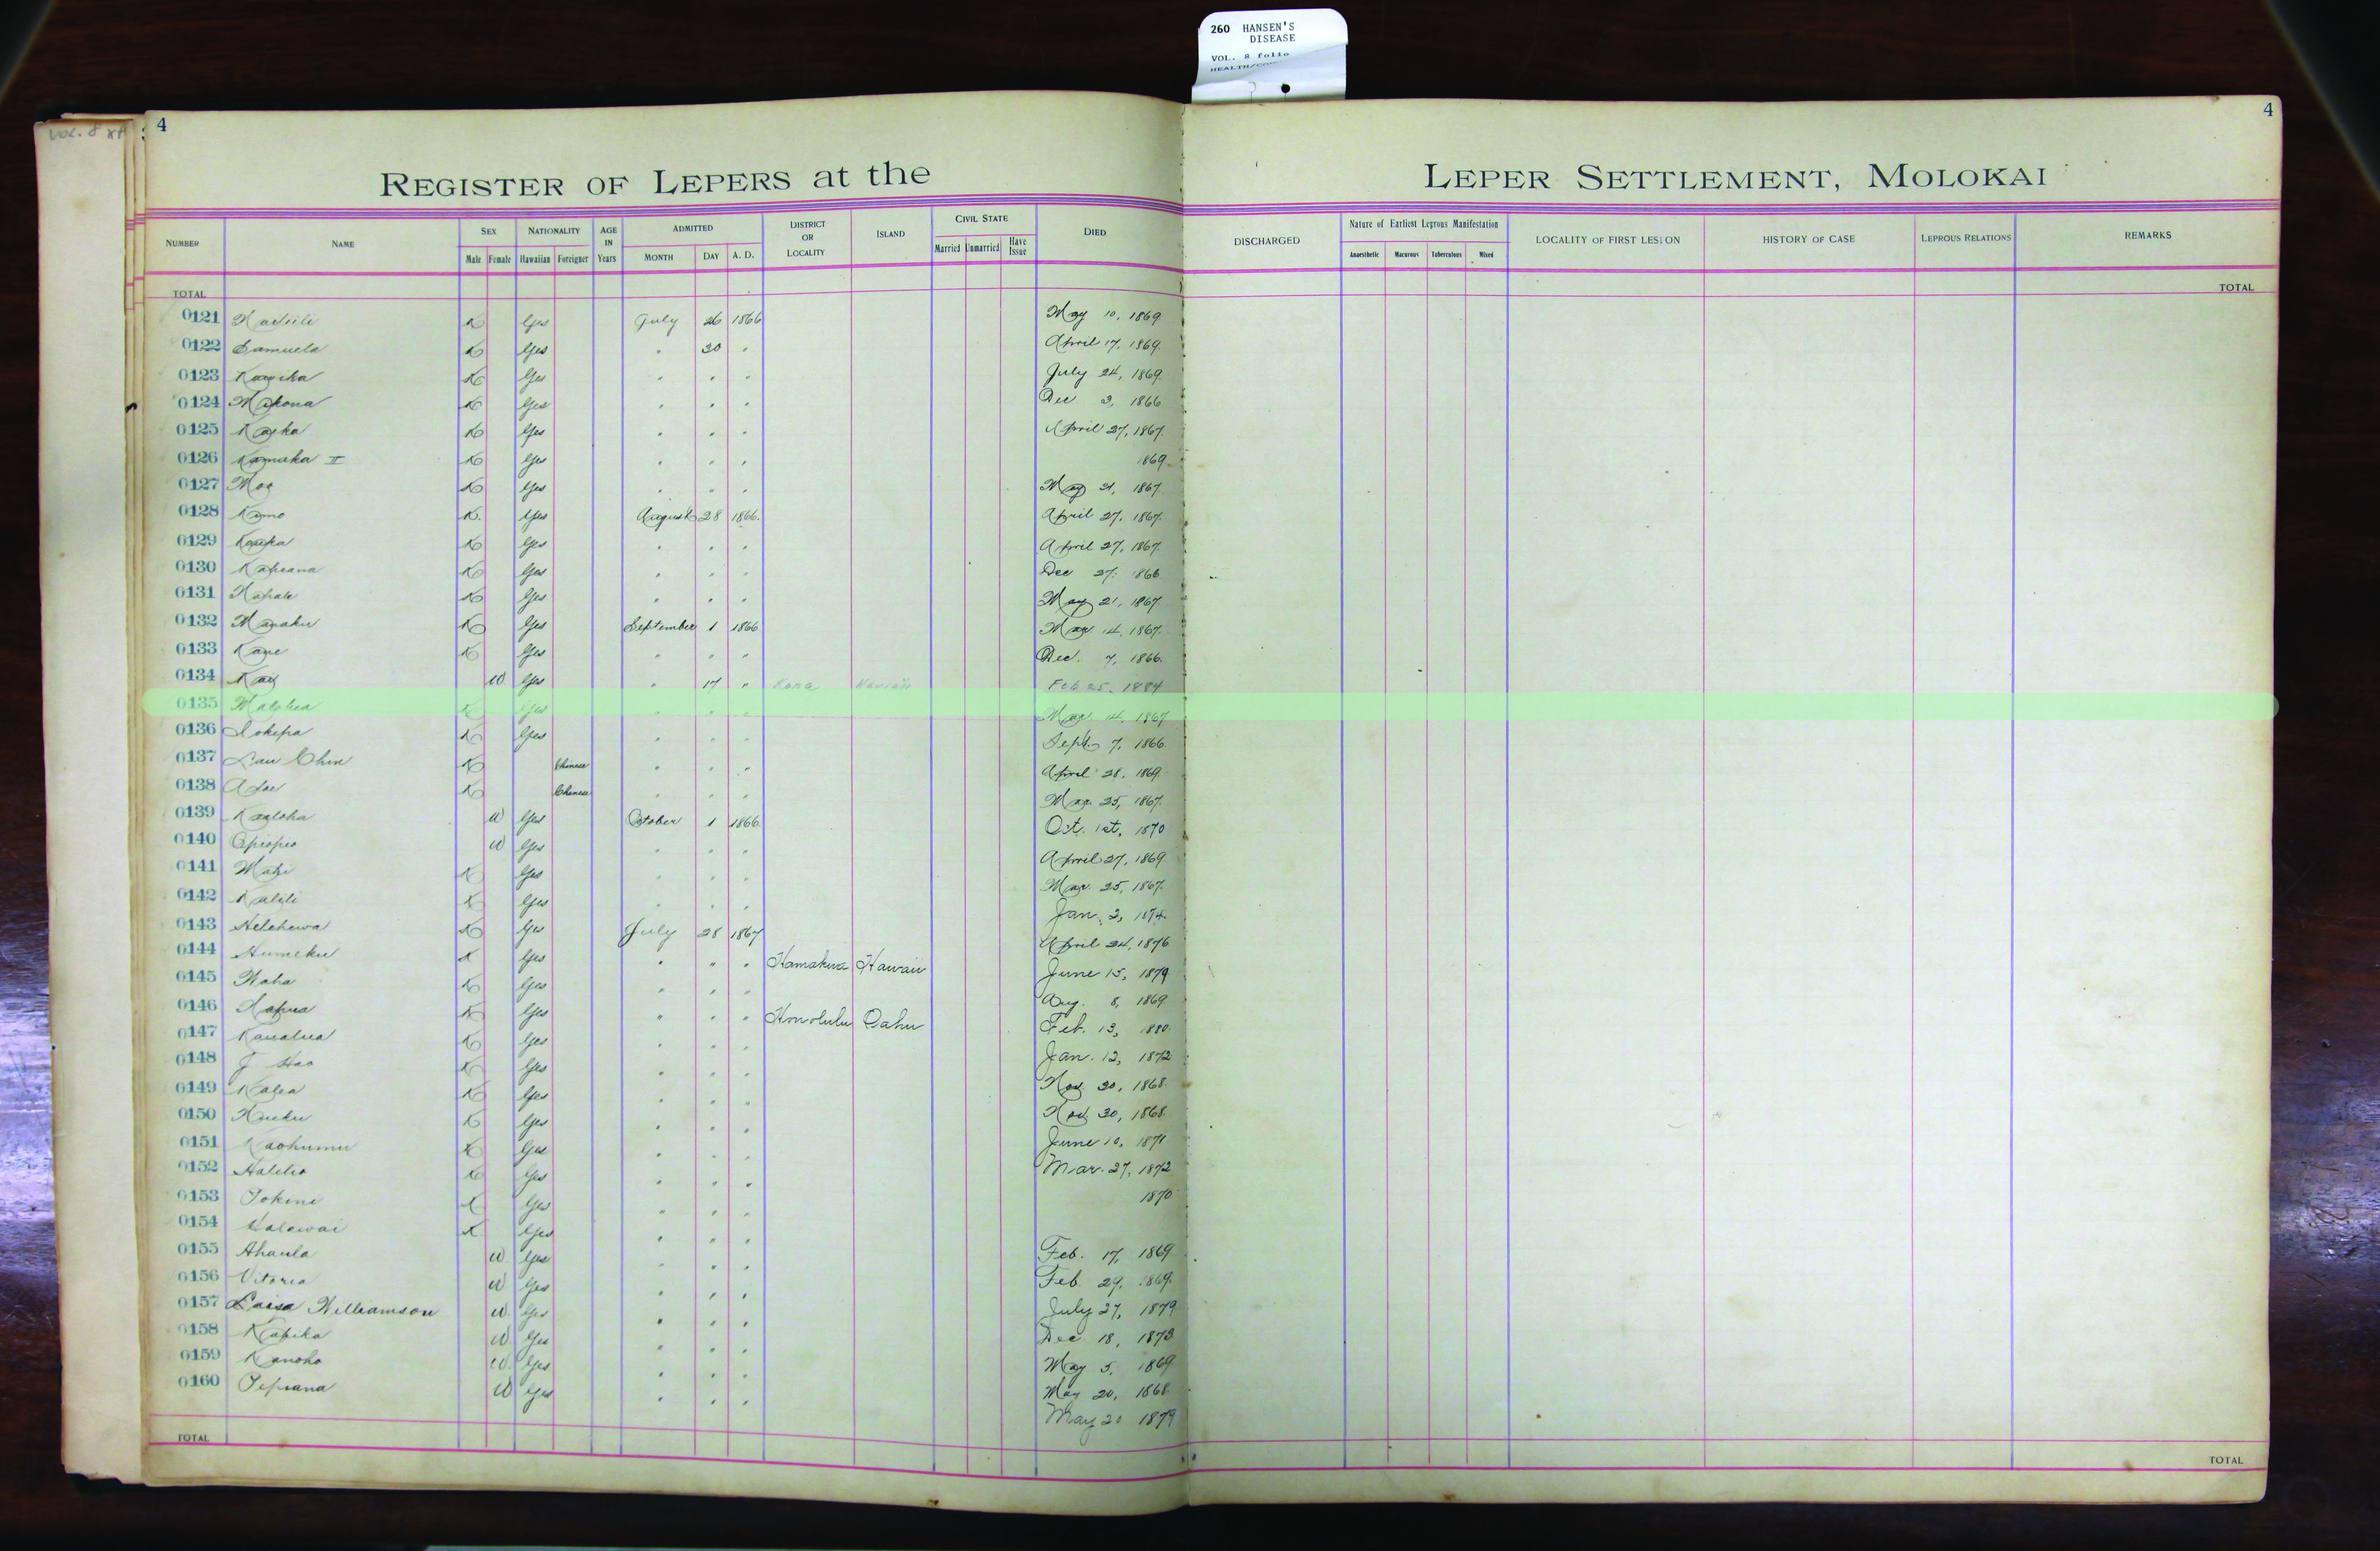 260 HANSEN'S
DISEASE
VOL. 8 folio
VOL. 8
4
4
REGISTER OF LEPERS at the LEPER SETTLEMENT, MOLOKAI
NUMBER NAME SEX Male Female NATIONALITY Hawaiian Foreigner AGE IN Years ADMITTED MONTH DAY A. D. DISTRICT OR LOCALITY ISLAND CIVIL STATE Married Unmarried Have Issue DIED DISCHARGED Nature of Earliest Leprous Manifestation Anaesthetic Macurous Tuberculous Mixed LOCALITY OF FIRST LESION HISTORY OF CASE LEPROUS RELATIONS REMARKS
TOTAL TOTAL
0121 K Yes July 26 1866 May 10, 1869
0122 Samuela K Yes " 30 " April 17, 1869.
0123 K Yes " " " July 24, 1869.
0124 Makona K Yes " " " Dec 3, 1866
0125 K Yes " " " April 27, 1867.
0126 Kamaka II K Yes " " " 1869
0127 Moa K Yes " " " May 21, 1867
0128 K. Yes August 28 1866. April 27, 1867.
0129 K Yes " " " April 27, 1867.
0130 Kapiana K Yes " " " Dec 27. 1866
0131 K Yes " " " May 21, 1867.
0132 K Yes September 1 1866 Mar 14, 1867.
0133 K Yes " " " Dec. 7, 1866.
0134 W Yes " 17 " Kona Hawaii Feb 25, 1884
0135 K Yes " " " Mar 14, 1867
0136 Iokepa K Yes " " " Sept. 7, 1866
0137 Lau Chin K Chinese " " " April 28, 1869
0138 K Chinese " " " Mar. 25, 1867.
0139 Kaaloha W Yes October 1 1866. Oct. 1st, 1870
0140 Opiopio W Yes " " " April 27, 1869.
0141 K Yes " " " Mar. 25, 1867.
0142 Kalili K Yes " " " Jan. 2, 1874.
0143 Helehewa K Yes July 28 1867 April 24, 1876
0144 Humeku K Yes " " " Hamakua Hawaii June 15, 1879
0145 Waha K Yes " " " Aug. 8, 1869.
0146 K Yes " " " Honolulu Oahu Feb. 13, 1880.
0147 Kaualua K Yes " " " Jan. 12, 1872
0148 J Hao K Yes " " " Nov. 30, 1868.
0149 Kalea K Yes " " " Nov. 30, 1868
0150 K Yes " " " June 10, 1871
0151 Kaohumu K Yes " " " Mar. 27, 1872
0152 Halelio K Yes " " " 1870
0153 Iokini K Yes " " "
0154 Halawai K Yes " " " Feb. 17, 1869
0155 Ahaula W Yes " " " Feb. 29, 1869.
0156 Vitoria W Yes " " " July 27, 1879
0157 Luisa Williamson W Yes " " " Dec. 18, 1873.
0158 Kapeka W Yes " " " May 5, 1869
0159 Kanoho W Yes " " " May 20, 1868
0160 Tepiana W Yes " " " May 20 1879
TOTAL TOTAL